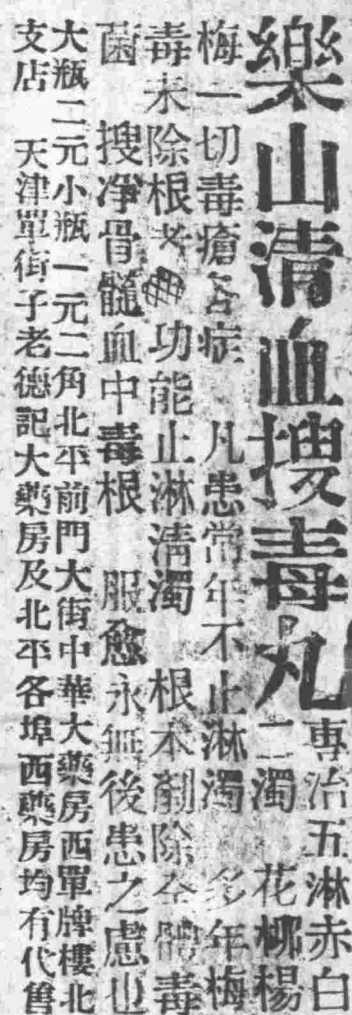 樂山清血搜毒丸
專治五淋赤白
二濁 花柳楊
梅一切毒瘡各症 凡患常年不止淋濁 多年梅
毒未除根者 功能止淋清濁 根本剷除全體毒
菌 搜淨骨髓血中毒根 服愈永無後患之慮也
大瓶二元小瓶一元二角北平前門大街中華大藥房西單牌樓北
支店 天津單街子老德記大藥房及北平各埠西藥房均有代售